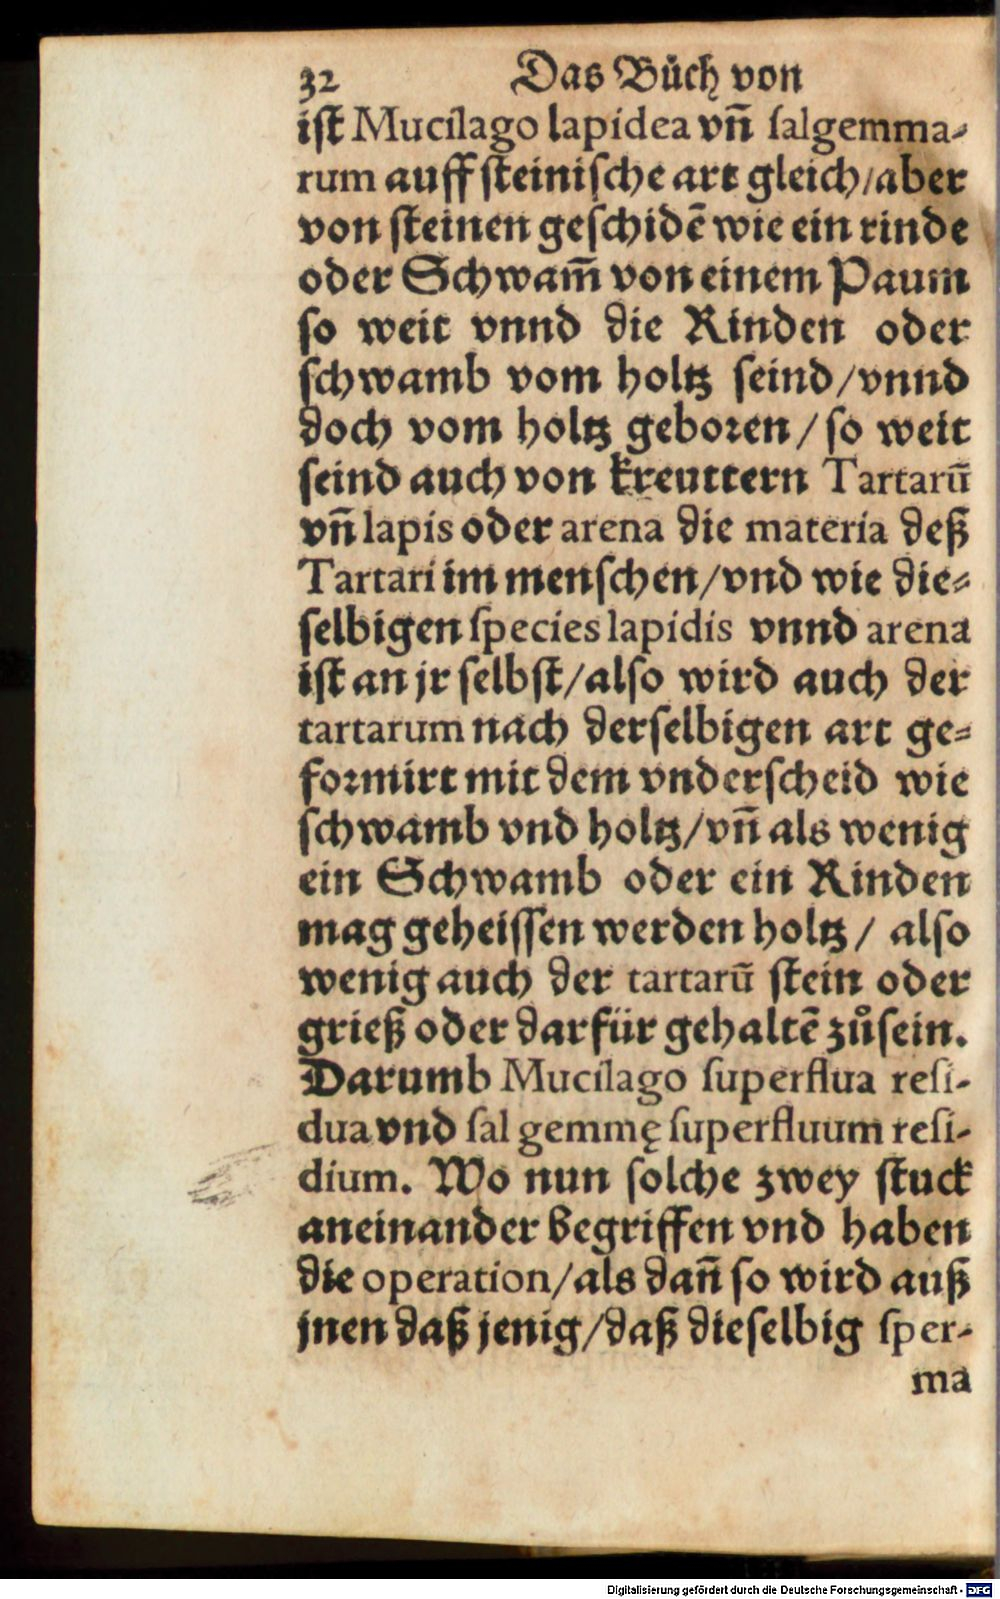 32 Das Bůch von
ist Mucilago lapidea vñ salgemma-
rum auff steinische art gleich/aber
von steinen geschidẽ wie ein rinde
oder Schwam̃ von einem Paum
so weit vnnd die Rinden oder
schwamb vom holtz seind/vnnd
doch vom holtz geboren/so weit
seind auch von kreuttern Tartarũ
vñ lapis oder arena die materia deß
Tartari im menschen/vnd wie die-
selbigen species lapidis vnnd arena
ist an jr selbst/also wird auch der
tartarum nach derselbigen art ge-
formirt mit dem vnderscheid wie
schwamb vnd holtz/vñ als wenig
ein Schwamb oder ein Rinden
mag geheissen werden holtz/ also
wenig auch der tartarũ stein oder
grieß oder darfür gehaltẽ zůsein.
Darumb Mucilago superflua resi-
dua vnd sal gemmę superfluum resi-
dium. Wo nun solche zwey stuck
aneinander begriffen vnd haben
die operation/als dañ so wird auß
jnen daß jenig/daß dieselbig sper-
ma
Digitalisierung gefördert durch die Deutsche Forschungsgemeinschaft - DFG